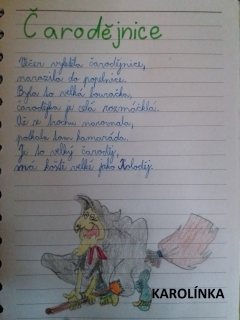 Čarodějnice
Večer vylétla čarodějnice,
narazila do popelnice.
Byla to velká bouračka,
čarodějka je celá rozmáčklá.
Až se trochu narovnala,
potkala tam kamaráda.
Je to velký čaroděj,
má koště velké jako Koloděj.
KAROLÍNKA